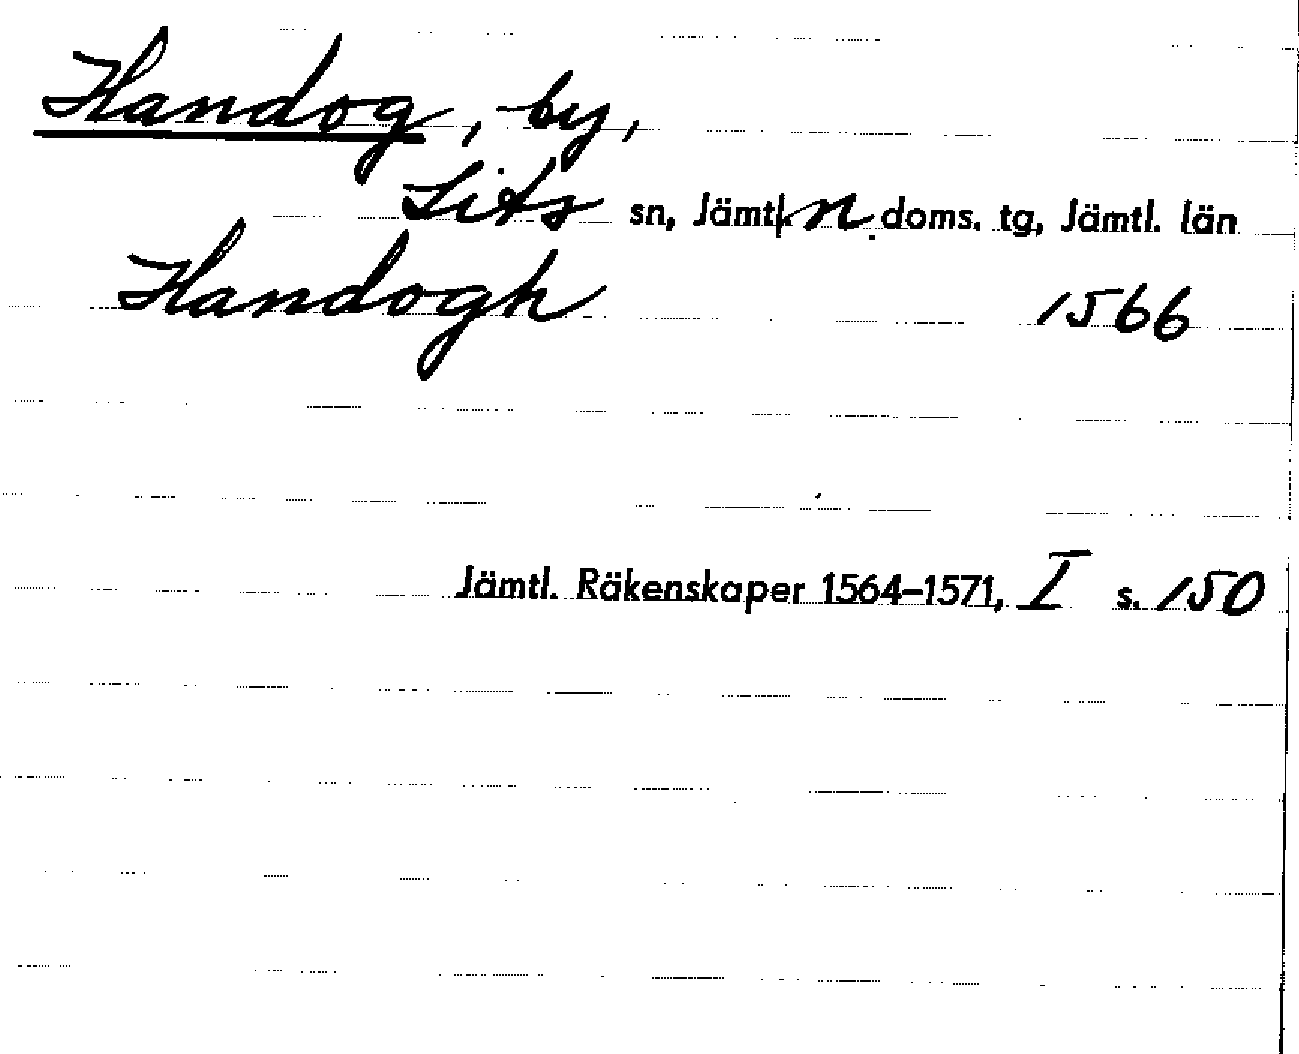 Handog, by,
Lits sn, Jämtl. n. doms. tg, Jämtl. län
Handogh 1566
Jämtl. Räkenskaper 1564–1571, I s. 150